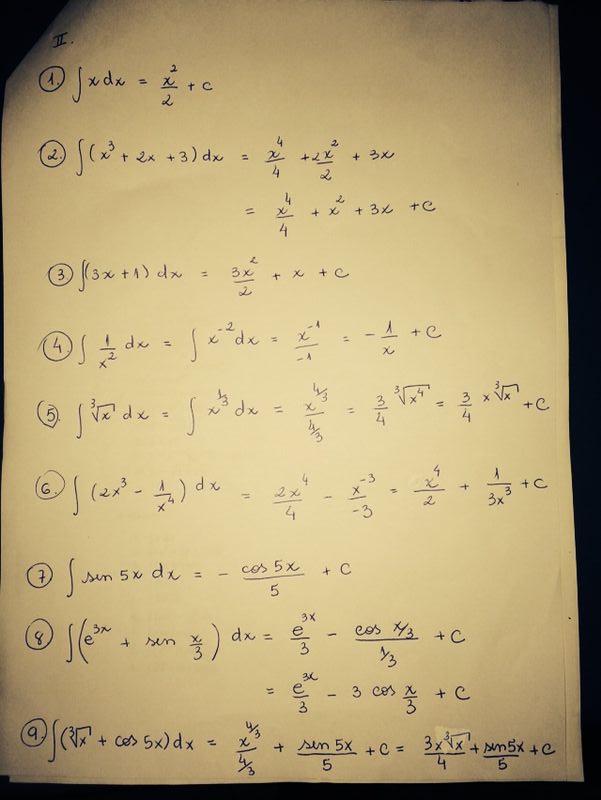 II.
1. ∫ x dx = x²/2 + c
2. ∫ (x³ + 2x + 3) dx = x⁴/4 + 2x²/2 + 3x
= x⁴/4 + x² + 3x + C
3 ∫(3x + 1) dx = 3x²/2 + x + C
4. ∫ 1/x² dx = ∫ x⁻² dx = x⁻¹/-1 = - 1/x + C
5. ∫ ∛x dx = ∫ x^(1/3) dx = x^(4/3)/(4/3) = 3/4 ∛x⁴ = 3/4 x ∛x + C
6. ∫ (2x³ - 1/x⁴) dx = 2x⁴/4 - x⁻³/-3 = x⁴/2 + 1/3x³ + C
7 ∫ sen 5x dx = - cos 5x/5 + C
8 ∫(e³ˣ + sen x/3) dx = e³ˣ/3 - cos x/3/(1/3) + C
= e³ˣ/3 - 3 cos x/3 + C
9. ∫(∛x + cos 5x) dx = x^(4/3)/(4/3) + sen 5x/5 + C = 3x∛x/4 + sen5x/5 + C